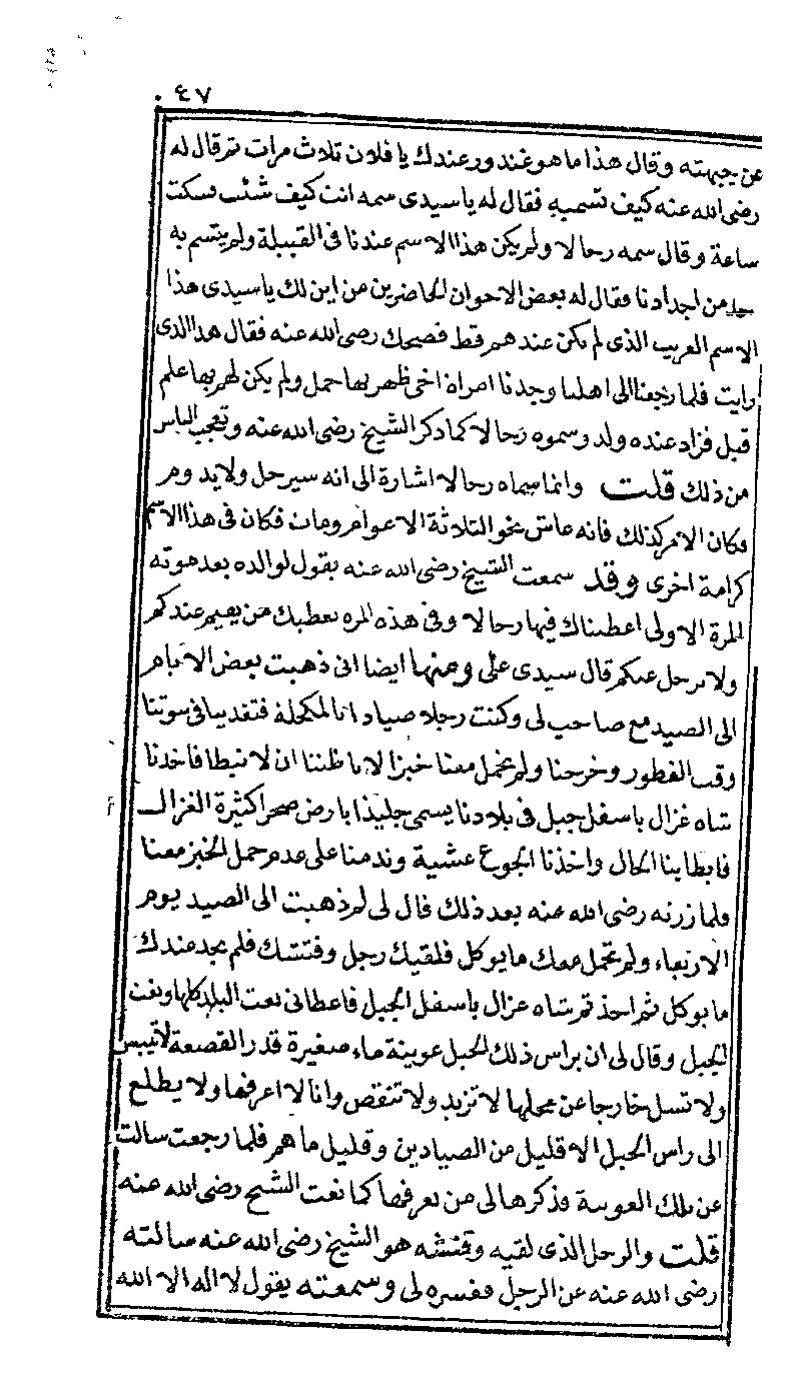 ٤٧
عن جبهته وقال هذا ما هو غندور عندك يا فلان ثلاث مرات ثم قال له
رضى الله عنه كيف تسميه فقال له يا سيدى سمه انت كيف شئت فسكت
ساعة وقال سمه رحالا ولم يكن هذا الاسم عندنا فى القبيلة ولم يتسم به
احد من اجدادنا فقال له بعض الاخوان الحاضرين من اين لك يا سيدى هذا
الاسم الغريب الذى لم يكن عندهم قط فضحك رضى الله عنه فقال هذا الذى
رايت فلما رجعنا الى اهلنا وجدنا امراة اخى ظهر بها حمل ولم يكن لهم بها علم
قبل فزاد عنده ولد وسموه رحالا كما ذكر الشيخ رضى الله عنه وتعجب الناس
من ذلك قلت وانما سماه رحالا اشارة الى انه سيرحل ولا يدوم
فكان الامر كذلك فانه عاش نحو الثلاثة الاعوام ومات فكان فى هذا الاسم
كرامة اخرى وقد سمعت الشيخ رضى الله عنه يقول لوالده بعد موته
المرة الاولى اعطيناك فيها رحالا وفى هذه المره نعطيك من يقيم عندكم
ولا يرحل عنكم قال سيدى على ومنها ايضا انى ذهبت بعض الايام
الى الصيد مع صاحب لى وكنت رجلا صيادا بالمكحلة فتغدينا فى بيوتنا
وقت الفطور وخرجنا ولم نحمل معنا خبزا لانا ظننا ان لا نبطا فاخذنا
شاه غزال باسفل جبل فى بلادنا يسمى جليذا بارض صحرا كثيرة الغزال
فابطا بنا الحال واخذنا الجوع عشية وندمنا على عدم حمل الخبز معنا
فلما زرته رضى الله عنه بعد ذلك قال لى لم ذهبت الى الصيد يوم
الاربعاء ولم تحمل معك ما يوكل فلقيك رجل وفتشك فلم يجد عندك
ما يوكل ثم اخذتم شاه غزال باسفل الجبل فاعطانى نعت البلد كلها ونعت
الجبل وقال لى ان براس ذلك الجبل عوينة ماء صغيرة قدر القصعة لا تيبس
ولا تسل خارجا عن محلها لا تزيد ولا تنقص وانا لا اعرفها ولا يطلع
الى راس الجبل الا قليل من الصيادين وقليل ما هم فلما رجعت سالت
عن تلك العوينة فذكرها لى من يعرفها كما نعت الشيخ رضى الله عنه
قلت والرجل الذى لقيه وفتشه هو الشيخ رضى الله عنه سالته
رضى الله عنه عن الرجل ففسره لى وسمعته يقول لا اله الا الله